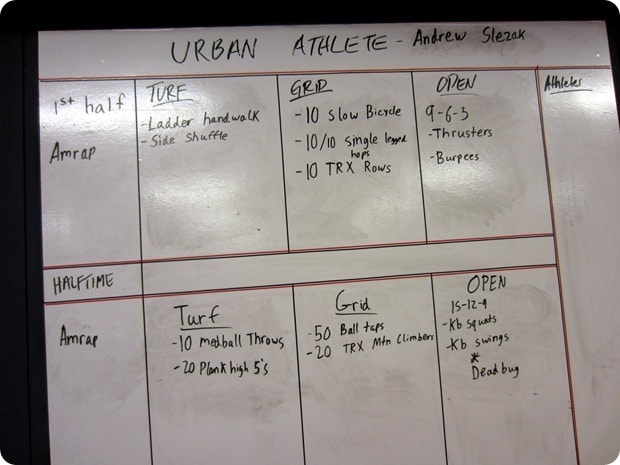 URBAN ATHLETE - Andrew Slezak
1st half
Amrap
TURF
- Ladder handwalk
- Side Shuffle
GRID
- 10 Slow Bicycle
- 10/10 Single legged
hops
- 10 TRX Rows
OPEN
9-6-3
- Thrusters
- Burpees
Athletes
HALFTIME
Amrap
Turf
- 10 medball Throws
- 20 Plank high 5's
Grid
- 50 Ball taps
- 20 TRX Mtn Climbers
OPEN
15-12-9
- Kb squats
- Kb swings
*
Deadbug